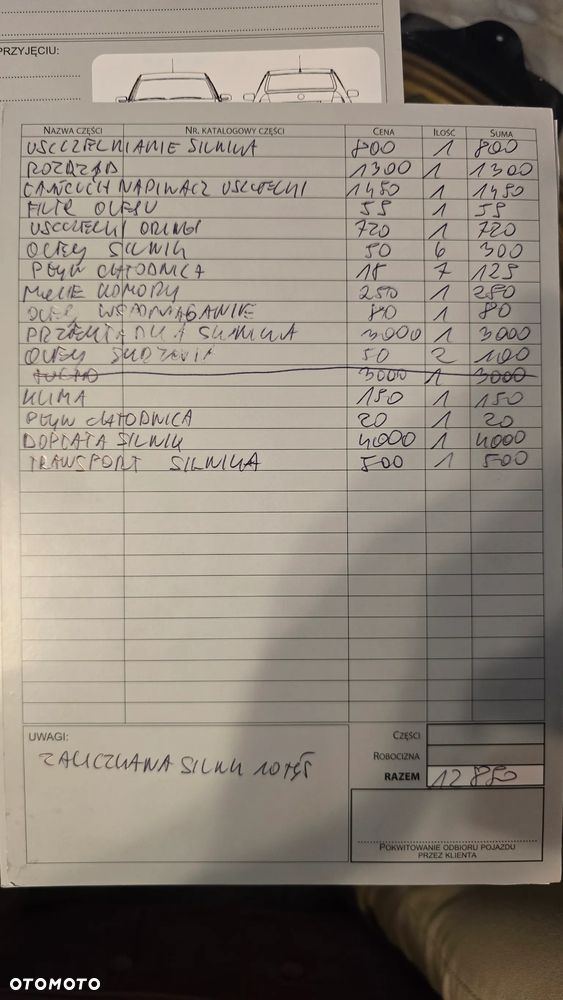 PRZYJĘCIU:
NAZWA CZĘŚCI NR. KATALOGOWY CZĘŚCI CENA ILOŚĆ SUMA
USZCZELNIANIE SILNIKA 800 1 800
ROZRZĄD 1300 1 1300
ŁAŃCUCH NAPINACZ USZCZELKI 1450 1 1450
FILTR OLEJU 55 1 55
USZCZELKI ORINGI 720 1 720
OLEJ SILNIK 50 6 300
PŁYN CHŁODNICA 18 7 125
MYCIE KOMORY 250 1 250
OLEJ WSPOMAGANIE 80 1 80
PRZEKŁADKA SILNIKA 3000 1 3000
OLEJ 50 2 100
3000 1 3000
KLIMA 150 1 150
PŁYN CHŁODNICA 20 1 20
DOPŁATA SILNIK 4000 1 4000
TRANSPORT SILNIKA 500 1 500
UWAGI:
ZALICZKA NA SILNIK 10 TYŚ
CZĘŚCI
ROBOCIZNA
RAZEM 12 850
POKWITOWANIE ODBIORU POJAZDU
PRZEZ KLIENTA
OTOMOTO